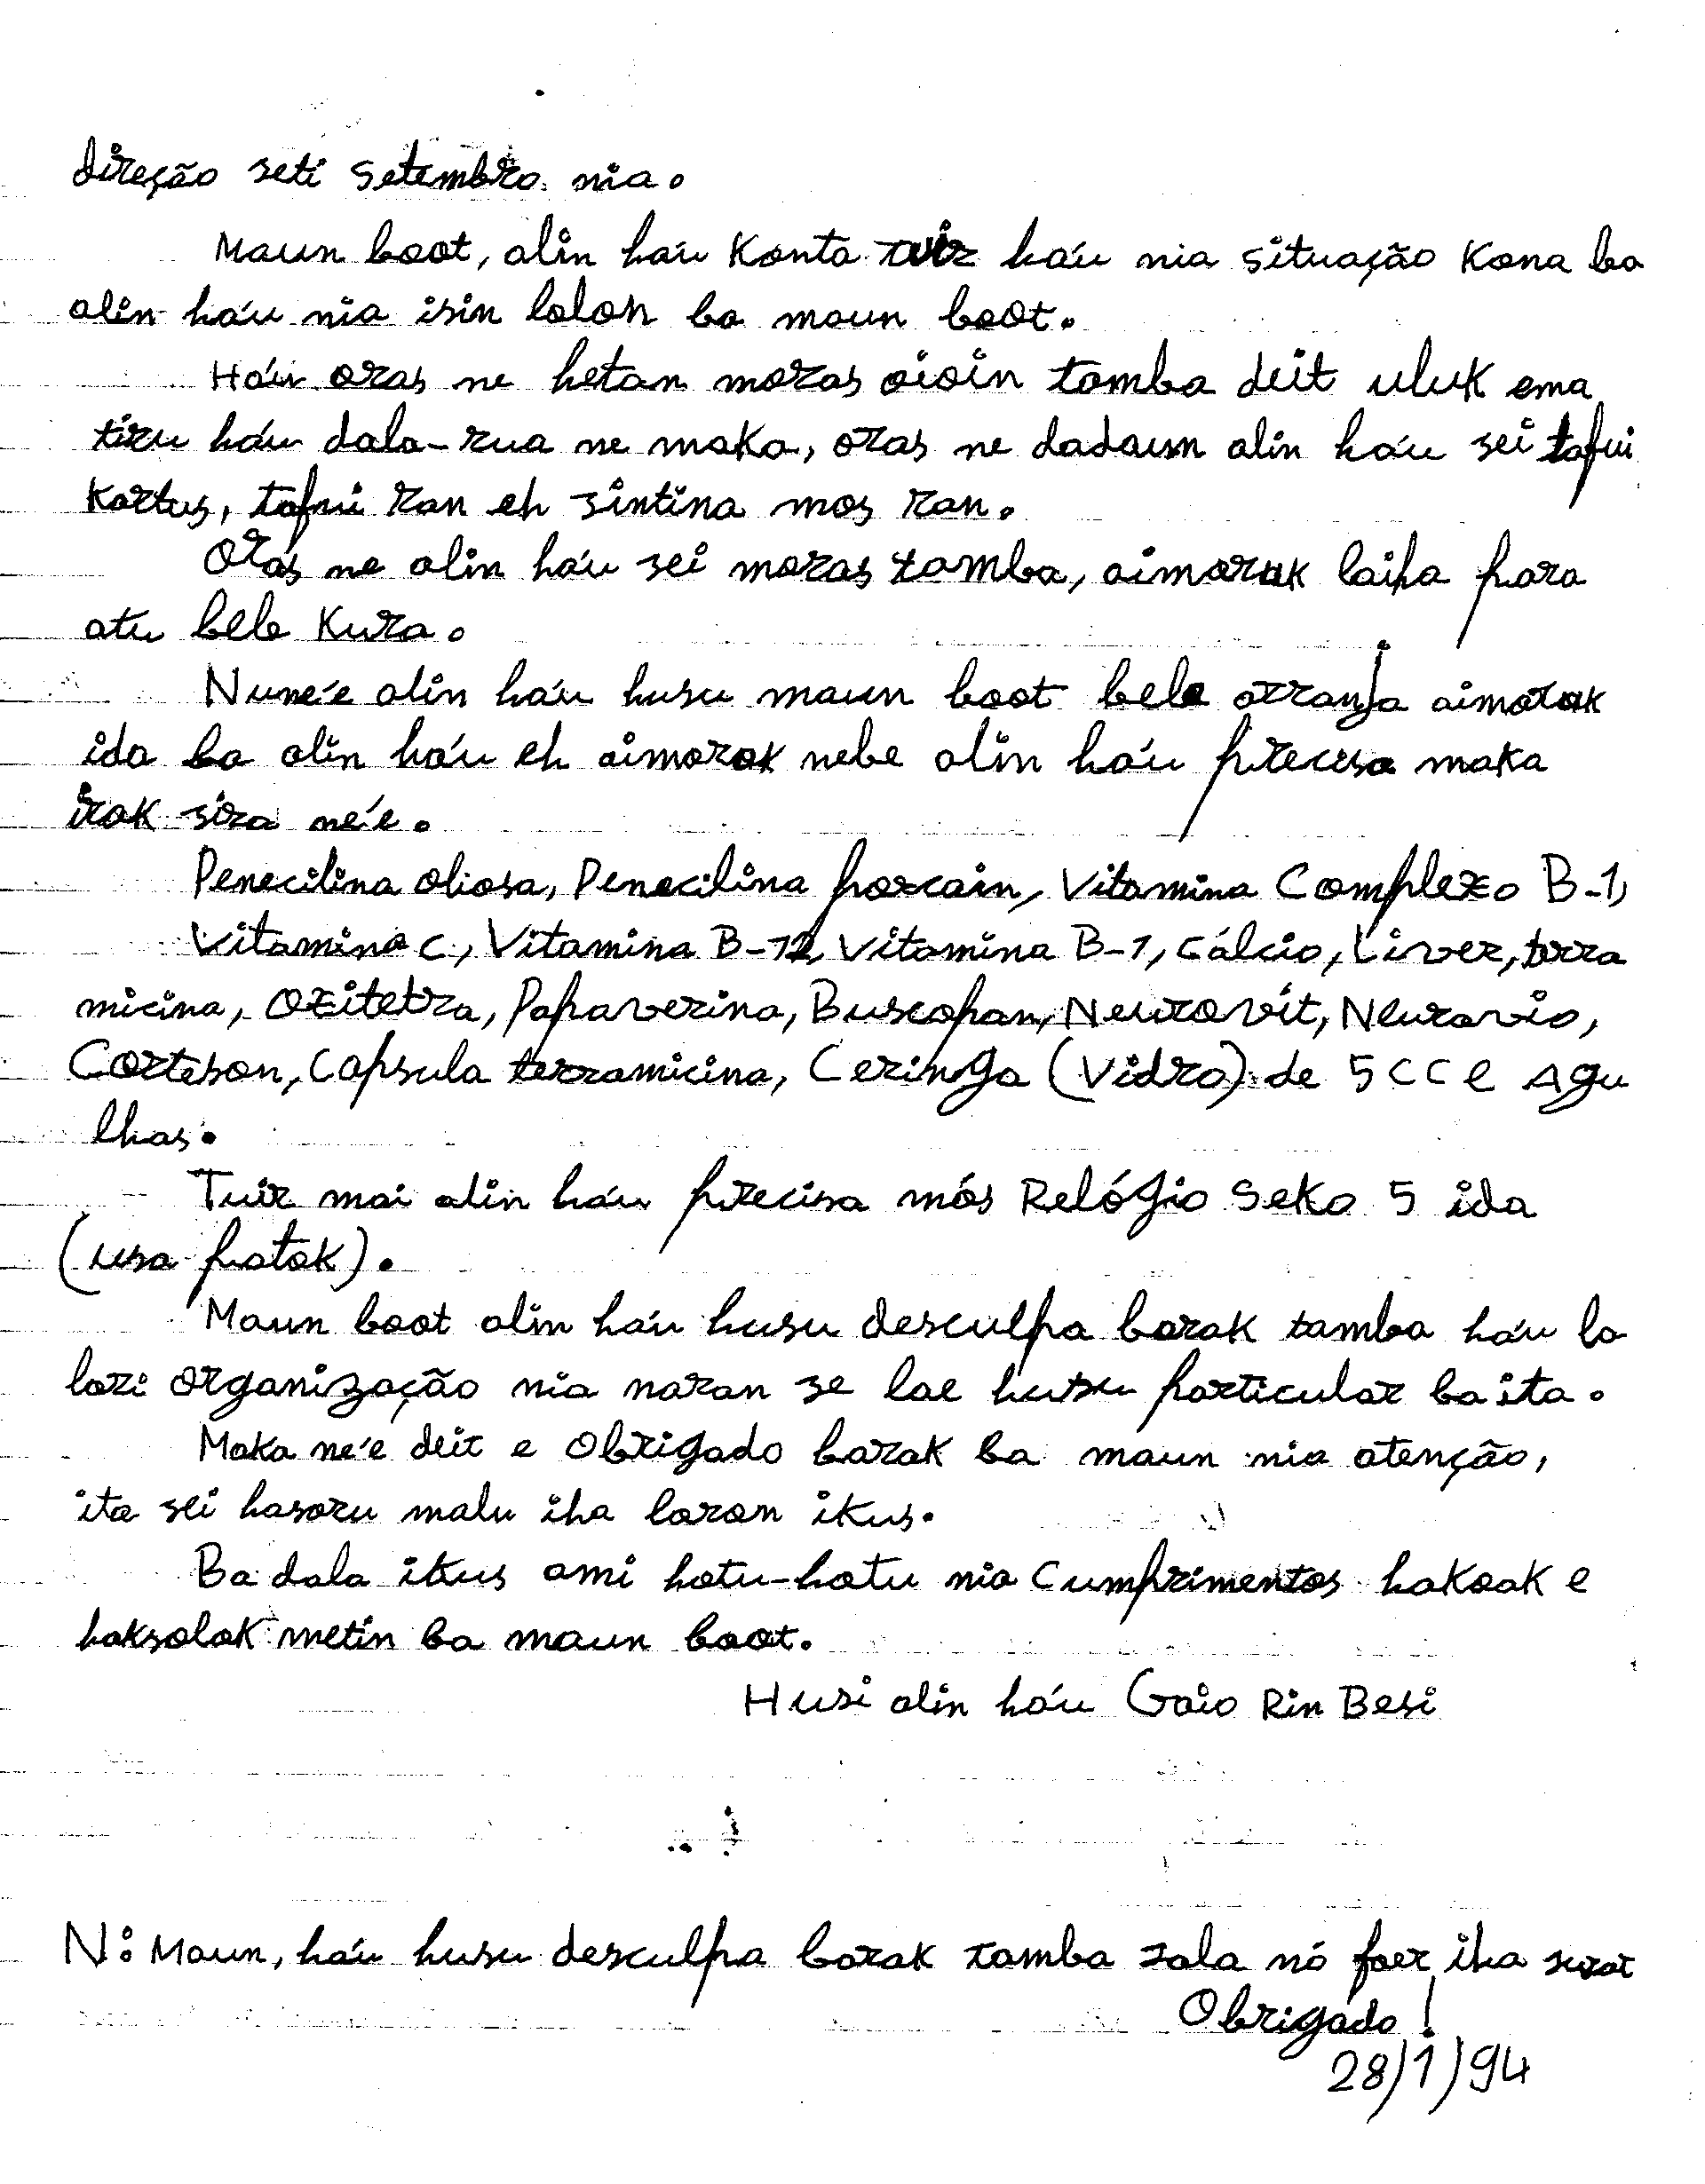 direção seti Setembro nia.
Maun boot, alin háu Konta tuir háu nia situação Kona ba
alin háu nia isin lolon ba maun boot.
Háu oras ne hetan moras oioin tamba deit uluk ema
tiru háu dala-rua ne maka, oras ne dadaun alin háu sei tafui
Kartus, tafui ran eh sintina mos ran.
Oras ne alin háu sei moras tamba, aimoruk laiha para
atu bele Kura.
Nune'e alin háu husu maun boot bele arranja aimoruk
ida ba alin háu eh aimoruk nebe alin háu precisa maka
irak sira ne'e.
Penecilina oliosa, Penecilina porcain, Vitamina Complexo B-1,
Vitamina C, Vitamina B-12, Vitamina B-1, Cálcio, Liver, terra
micina, Oxitetra, Papaverina, Buscopan, Neurovit, Neurovio,
Corteson, Capsula terramicina, Ceringa (Vidro) de 5 CC e Agu
lhas.
Tuir mai alin háu precisa mós Relógio Seko 5 ida
(usa patak).
Maun boot alin háu husu desculpa barak tamba háu la
lori organização nia naran se lae husu particular ba ita.
Maka ne'e deit e Obrigado barak ba maun nia atenção,
ita sei hasoru malu iha loron ikus.
Ba dala ikus ami hotu-hotu nia Cumprimentos hakoak e
haksolok metin ba maun boot.
Husi alin háu Gaio Rin Besi
N: Maun, háu husu desculpa barak tamba sala nó foer iha surat
Obrigado!
28/1/94